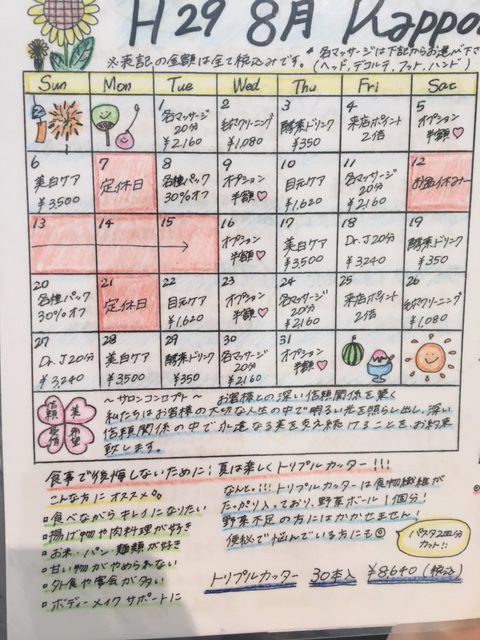 H29 8月 Kappo
※表記の金額は全て税込みです。 * 各マッサージは下記からお選び下さ
(ヘッド、デコルテ、フット、ハンド)
Sun Mon Tue Wed Thu Fri Sat
1 各マッサージ 20分 ¥2,160
2 毛穴クリーニング ¥1,080
3 酵素ドリンク ¥350
4 来店ポイント 2倍
5 オプション 半額♡
6 美白ケア ¥3,500
7 定休日
8 各種パック 30%オフ
9 オプション 半額♡
10 目元ケア ¥1,620
11 各マッサージ 20分 ¥2,160
12 お盆休み
13
14
15
16 オプション 半額♡
17 美白ケア ¥3,500
18 Dr.J 20分 ¥3,240
19 酵素ドリンク ¥350
20 各種パック 30%オフ
21 定休日
22 目元ケア ¥1,620
23 オプション 半額♡
24 各マッサージ 20分 ¥2,160
25 来店ポイント 2倍
26 毛穴クリーニング ¥1,080
27 Dr.J 20分 ¥3,240
28 美白ケア ¥3,500
29 酵素ドリンク ¥350
30 各マッサージ 20分 ¥2,160
31 オプション 半額♡
信頼 美 愛情 希望
〜サロンコンセプト〜 お客様との深い信頼関係を築く
私たちはお客様の大切な人生の中で明るい光を照らし出し、深い
信頼関係の中で永遠なる美を支え続けることを、お約束
致します。
食事で後悔しないために!夏は楽しくトリプルカッター!!!
こんな方にオススメ。
食べながらキレイになりたい
揚げ物や肉料理が好き
お米・パン・麺類が好き
甘い物がやめられない
外食や宴会が多い
ボディーメイクサポートに
なんと、!!!トリプルカッターは食物繊維が
たっぷり入っており、野菜ボール1個分!
野菜不足の方にはかかせません!
便秘で悩んでいる方にも
パスタ2皿分
カット!!
トリプルカッター 30本入 ¥8,640(税込)